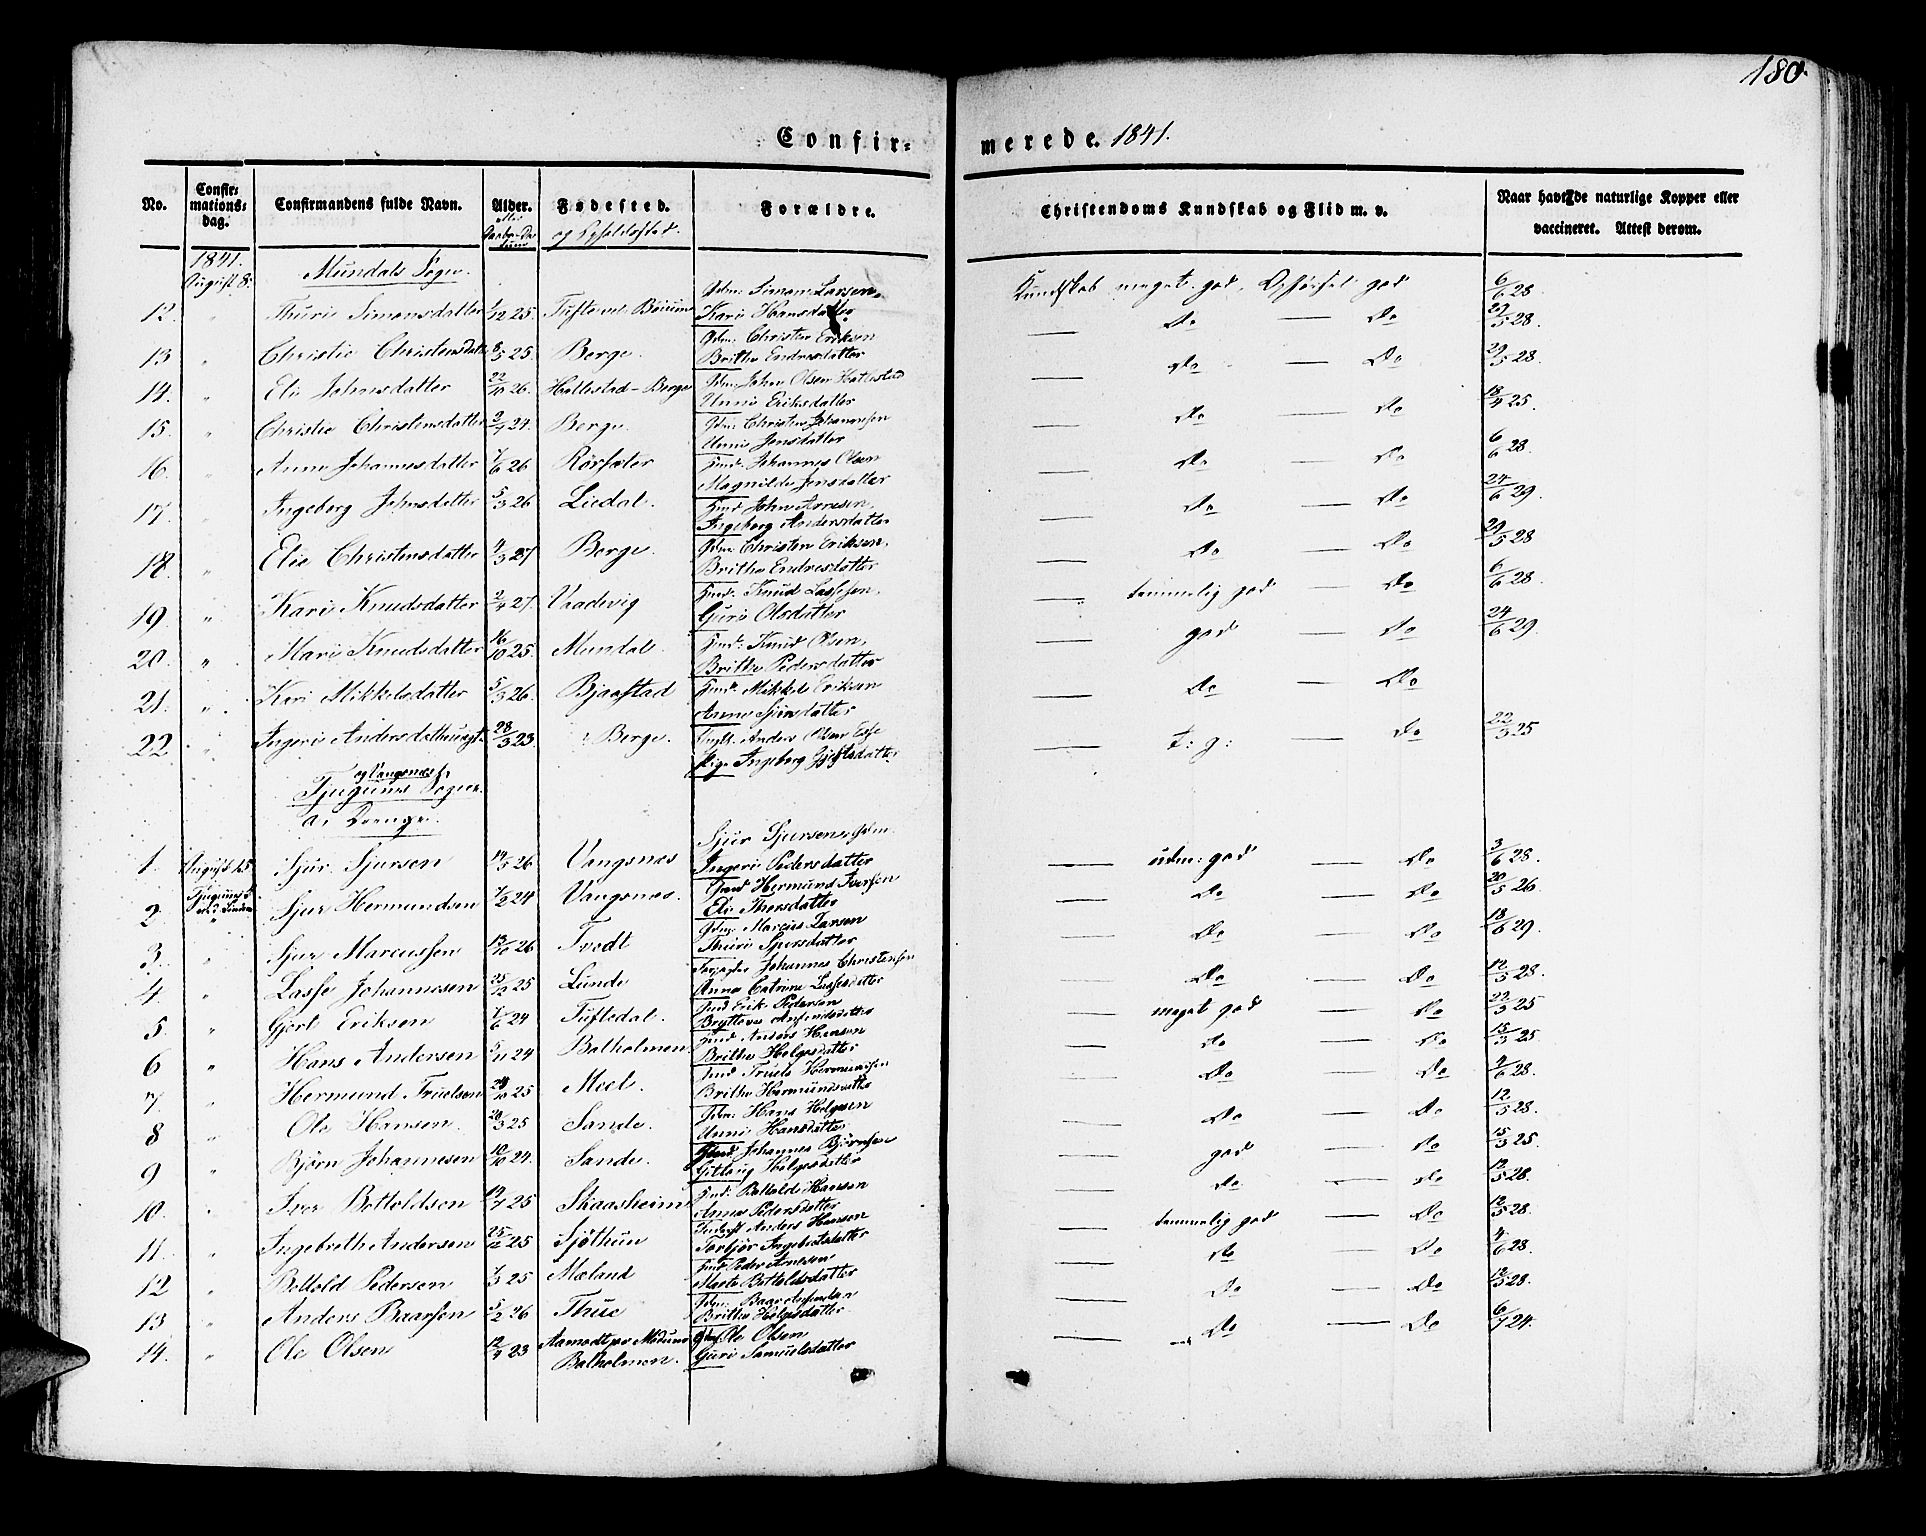 180.
Confirmerede. 1841.
No. Confirmationsdag. Confirmandens fulde Navn. Alder. Fødested. Forældre. Christendoms Kundskab og Flid m. v. Naar havte de naturlige Kopper eller vaccineret. Attest derom.
1841.
August 8. Mundals Sogn.
12. " Thuri Simonsdatter 1/12 25. Tufte Gdm: Simon Larsen, Kari Hansdatter Kundskab meget god, Opførsel god 6/6 28.
13 " Christie Christensdatt 8/5 25. Berge. Gdm: Christen Eriksen Brithe Endresdatter — Do — Do 29/5 28.
14. " Eli Johnsdatter 22/10 26. Hattestad - Berge Gdm: John Olsen Hattestad Unni Eriksdatter — Do — Do 29/5 28.
15. " Christie Christensdatter 2/7 24. Berge. Gdm: Christen Johannesen Unni Jensdatter — Do — Do 18/4 25.
16 " Anne Johannesdatter 7/6 26 Rørsæter Hmd: Johannes Olsen Magnilde Jensdatter — Do — Do 6/6 28.
17. " Ingeborg Johnsdatter 5/3 26 Liedal. Hmd John Arnesen, Ingeborg Andersdatter — Do — Do 24/6 29.
18. " Elie Christensdatter 4/3 27 Berge. Gdm: Christen Eriksen, Brithe Endresdatter — Do — Do 29/5 28
19. " Kari Knudsdatter 2/4 27. Vaadevig Hmd: Knud Lassesen, Guri Olsdatter " temmelig god — Do 6/6 28.
20. " Mari Knudsdatter 16/10 25. Mundal. Hmd: Knud Olsen, Brithe Pedersdatter — god — Do 24/6 29.
21. " Kari Mikkelsdatter 5/3 26. Bjaastad Hmd: Mikkel Eriksen Anne Sjursdatter — Do — Do
22 " Ingeri Andersdatter 28/3 23. Berge. Anders Olsen Esse Pige Ingeborg — t: g: — Do 22/3 25
og Vangsnæs
Tjugums Sogn.
a. Drenge.
1. August 15 Sjur Sjursen 14/5 26 Vangsnæs Sjur Sjursen Ingeri Pedersdatter — udm: god — Do 3/6 28.
2. Sjur Hermundsen 7/2 24 Vangsnæs. Hermund Iversen Eli Thorsdatter — Do — Do 20/5 26.
3. " Sjur Marcussen 13/10 26 Tvedt Gdm: Marcus Larsen Thuri Sjursdatter — Do — Do 18/6 29
4. " Lasse Johannesen 25/12 25 Lunde Johannes Christensen Anna Catrine Lassesdatter — Do — Do 12/5 28.
5. " Gjert Eriksen 7/6 24 Tuftedal. Hmd Erik Pedersen — meget god — Do 22/3 25
6 " Hans Andersen 5/11 24 Balholmen Hmd Anders Hansen Brithe Helgesdatter — do — Do 15/3 25
7. " Hermund Truelsen 24/10 25 Meel. Hmd Truels Hermundsen Brithe Hermundsdatte — Do — Do 4/6 28.
8 " Ole Hansen. 20/3 25 Sande. Gdm: Hans Helgesen Unni Hansdatter — Do — Do 12/5 28.
9 " Bjørn Johannesen 10/10 24. Sande. Johannes Bjørnsen Gitlaug Helgesdatter — god — Do 15/3 25.
10. " Iver Bottoldsen 19/7 25 Skaasheim Hmd: Bottold Hansen Anna Pedersdatter — Do — Do 12/5 28.
11. " Ingebreth Andersen 25/12 25 Sjøthun Anders Hansen Torbjør Ingebretsdatter — temmelig god — Do 12/5 28.
12 " Bottold Pedersen 7/3 25 Mæland Hmd Peder Arnesen Marta Bottoldsdatter — Do — Do 4/6 28.
13 " Anders Baarsen 5/2 26 Thue Gdm: Baar Brithe Helgesdatter — Do — Do 12/5 28.
14. " Ole Olsen 12/4 23 Balholmen. Ole Olsen Guri Samuelsdatter — Do — Do 6/7 24.